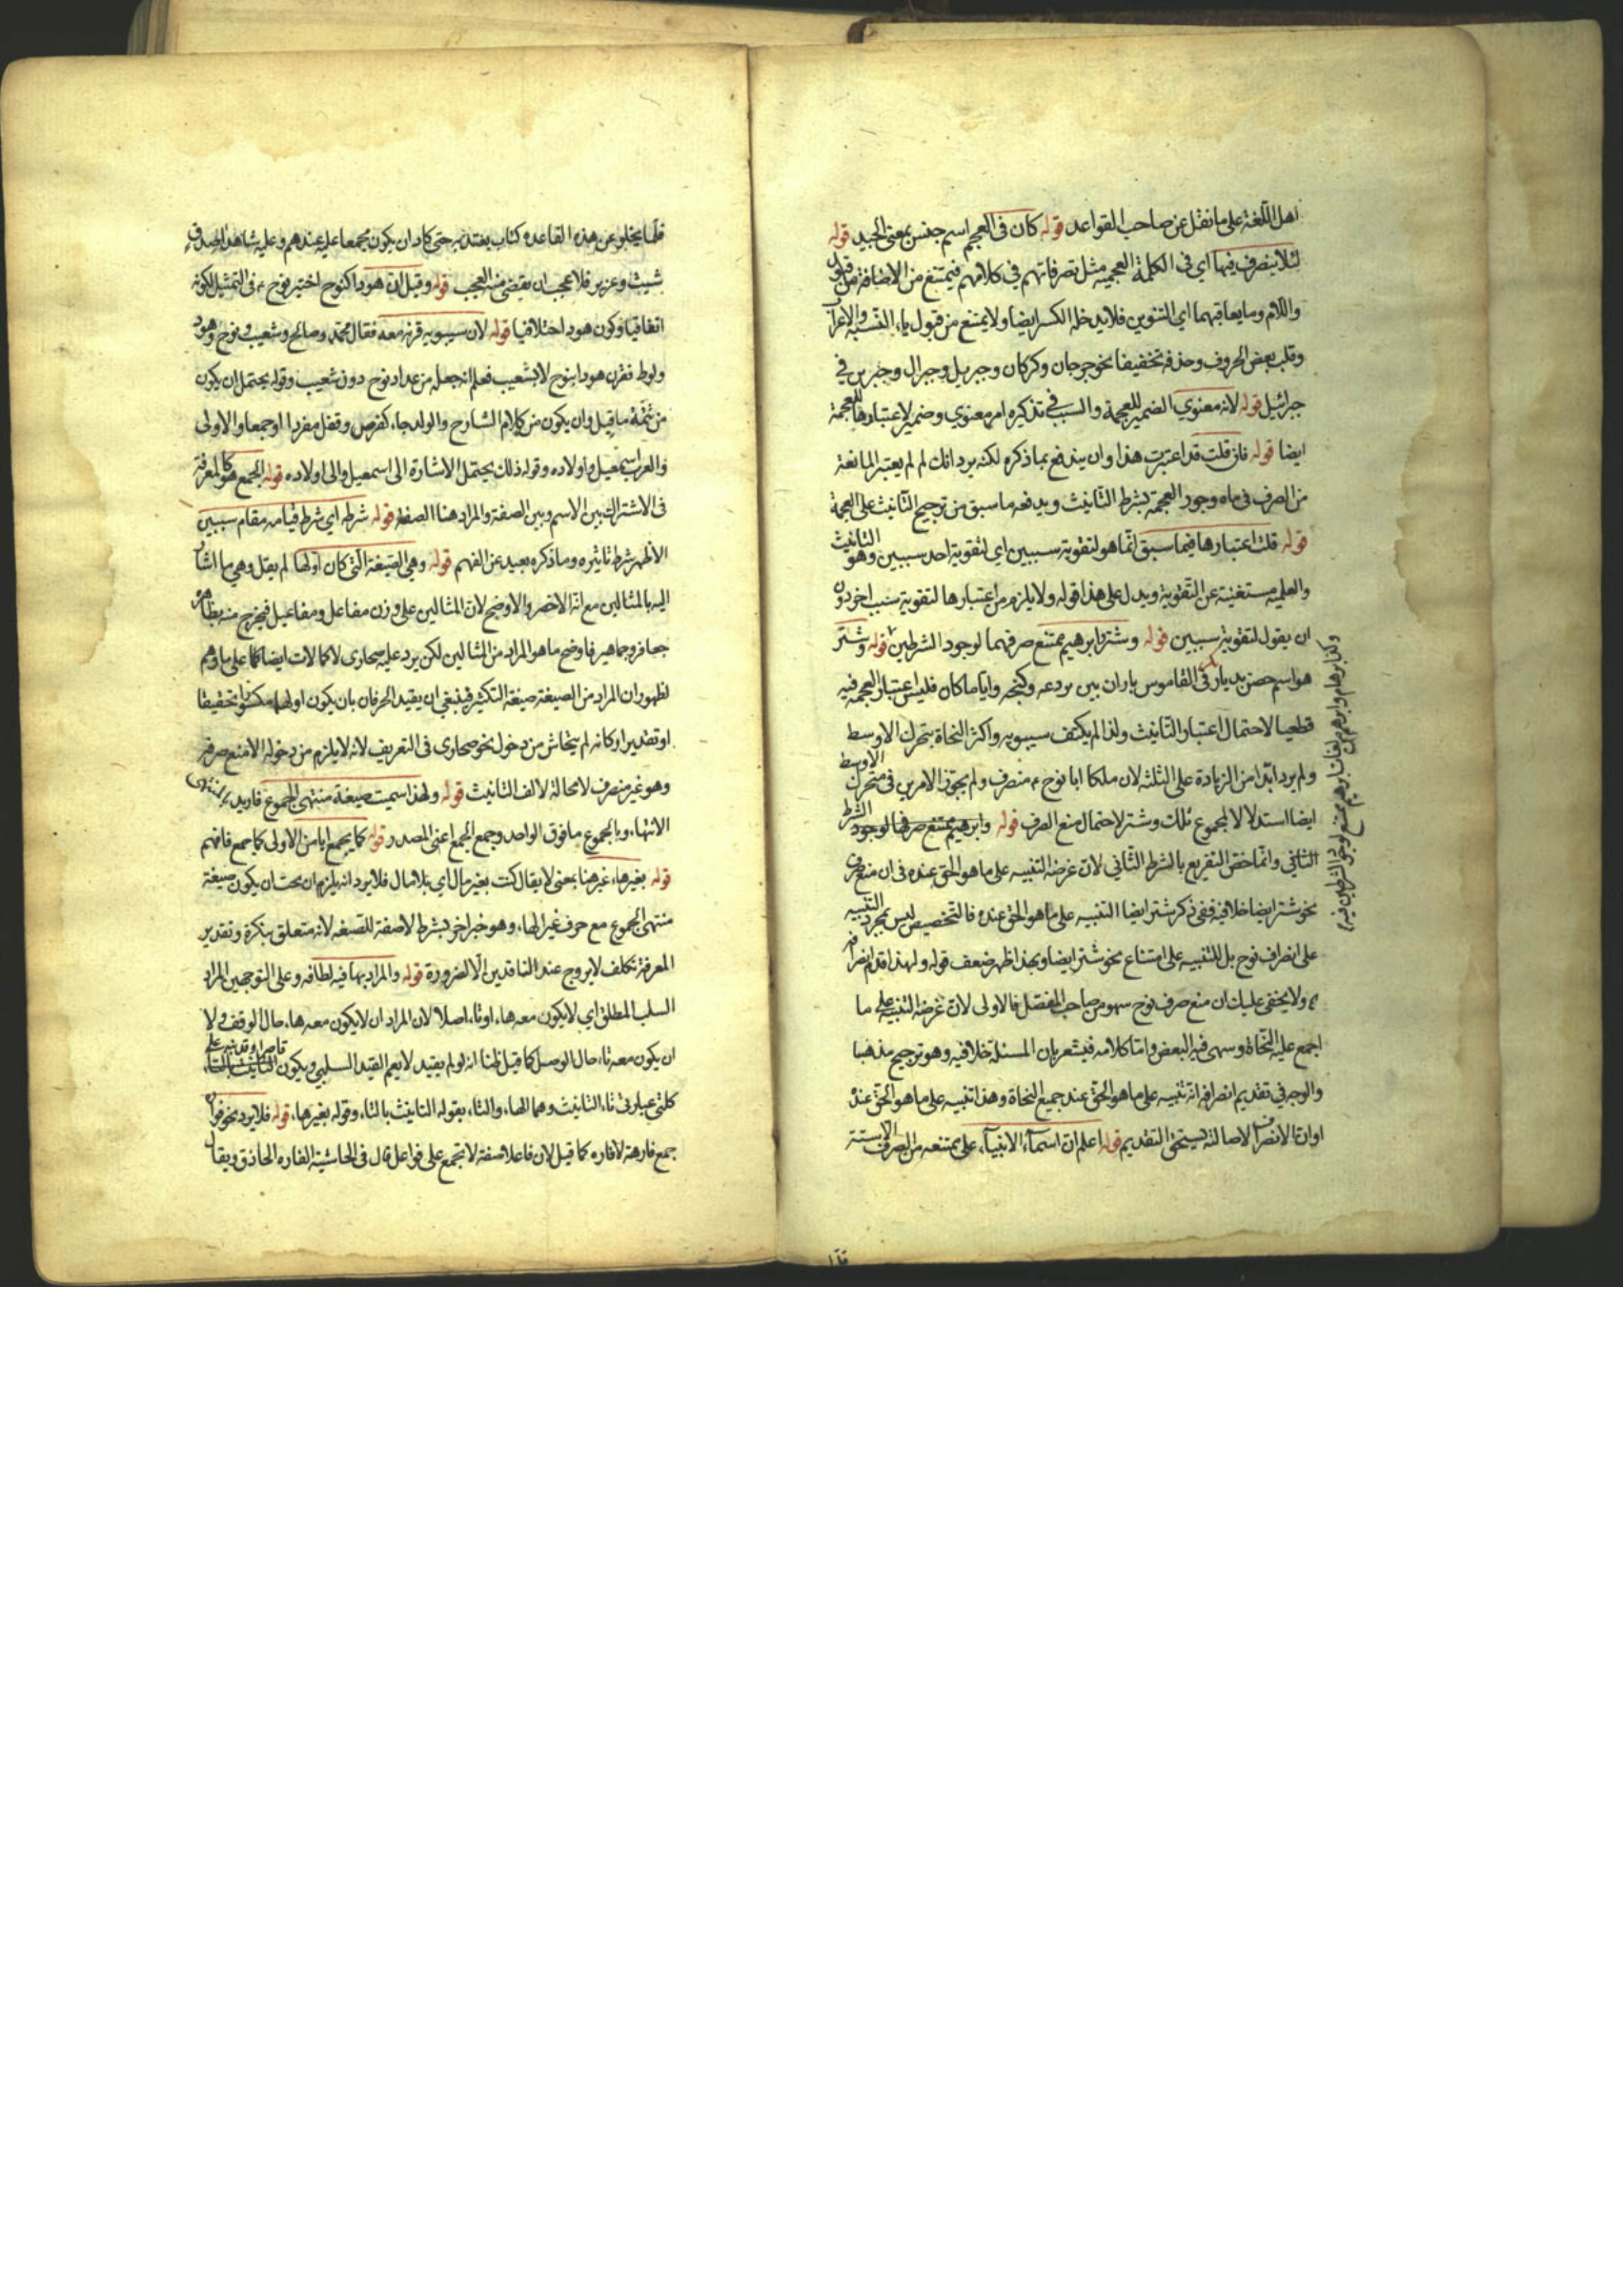 اهل اللّغة على ما نقل عن صاحب القواعد قوله كان فى العجم اسم جنس بمعنى الجيد قوله
لئلا يتصرف فيها اى فى الكلمة العجمية مثل تصرفاتهم فى كلامهم فيمتنع من الاضافة من قبول
واللام وما يعاقبهما اى التنوين فلا يدخله الكسر ايضا ولا يمتنع من قبول ياء النّسبة والاعراب
وقلب بعض الحروف وحذفه تخفيفا نحو جرجان وكركان وجبريل وجبرال وجبرين فى
جبرائيل قوله لانه معنوي الضمير للعجمة والسبب فى تذكيره امر معنوى وضمير لاعتبارها للعجمة
ايضا قوله فان قلت قد اعتبرت هذا وان يندفع بما ذكره لكنه يرد انك لم لم يعتبر المانعة
من الصرف فى ماه وجور العجمة بشرط التأنيث ويدفعه ما سبق من ترجيح التأنيث على العجمة
قوله قلت اعتبارها فيما سبق انّما هو لتقوية سببين اى لتقوية احد سببين وهو التانيث
والعلمية مستغنية عن التّقوية ويدل على هذا قوله ولا يلزم من اعتبارها لتقوية سبب اخر دون
ان يقول لتقوية سببين قوله وشتر وابرهيم ممتنع صرفهما لوجود الشرطين قوله وشتر
هو اسم حصن بديار بكر فى القاموس باران بين بردعه وكنجه واياما كان فليس اعتبار العجمه فيه
قطعيا لاحتمال اعتبار التأنيث ولذا لم يكتف سيبويه واكثر النحاة بتحرك الاوسط
ولم يرد ابدا من الزيادة على الثلثة لان ملكا ابا نوح ء منصرف ولم يجوّز الامرين فى متحرك الاوسط
ايضا استدلالا لمجموع تلك وشتر لاحتمال منع الصرف قوله وابرهيم يمتنع صرفها لوجود الشرط
الثانى وانّما خصّ التفريع بالشرط الثّاني لانّ غرضه التنبيه على ما هو الحق عنده فى ان منع صرف
نحو شتر ايضا خلافية ففى ذكر شتر ايضا التنبيه على ما هو الحق عنده فالتّخصيص ليس بمجرد التنبيه
على انصراف نوح بل للتنبيه على امتناع نحو شتر ايضا وبهذا ظهر ضعف قوله ولهذا قدم انصرافه
ء ولا يخفى عليك ان منع صرف نوح سهو من صاحب المفصّل فالاولى لان غرضه التنبيه على ما
اجمع عليه النّحاة وسهى فيه البعض وامّا كلامه فيشعر بان المسئلة خلافيه وهو ترجيح مذهبا
والوجه فى تقديم انصرافه انه تنبيه على ما هو الحق عند جميع النحاة وهذا تنبيه على ما هو الحق عنده
او انّ الانصراف لاصالته يستحق التقديم قوله اعلم انّ اسماء الانبياء على ممتنعه من الصرف الا ستة
وكذا برهام وابرهم لغات ابرهيم ممتنع لوجود الشرطين فيه
قلما يخلو عن هذه القاعده كتاب يعتد به حتى كاد ان يكون مجمعا عليه عندهم وعليه شاهدا لصدق
شيث وعزير فلا عجب ان يقضى منه العجب قوله وقيل انّ هودا كنوح اختير نوح ء فى التمثيل لكونه
اتفاقيا وكون هود اختلافيا قوله لان سيبويه قرنه معه فقال محمد وصالح وشعيب ونوح وهود
ولوط فقرن هودا بنوح لا بشعيب فعلم انه جعله من عداد نوح دون شعيب وقوله يحتمل ان يكون
من تتمّة ما قيل وان يكون من كلام الشارح والولد جاء كفرص وقفل مفردا وجمعا والاولى
والعرب اسمعيل واولاده وقوله ذلك يحتمل الاشارة الى اسمعيل والى اولاده قوله الجمع هو كالمعرفة
فى الاشتراك بين الاسم وبين الصفة والمراد هنا الصفة قوله شرطه اي شرط قيامه مقام سببين
الاظهر شرط تاثيره وما ذكره بعيد عن الفهم قوله وهى الصّيغة الّتى كان اوّلها لم يقل وهى ما اشار
اليه بالمثالين مع انه الاخصر والاوضح لان المثالين على وزن مفاعل ومفاعيل فيخرج منه بظاهره
جعافر وجماهير فاوضح ما هو المراد من المثالين لكن يرد عليه صحارى لا كمالات ايضا كما على ما وهم
لظهور ان المراد من الصيغة صيغة التكثير فينبغى ان يقيد الحرفان بان يكون اولهما مكسورا تحقيقا
او تقديرا وكانه لم يتحاش من دخول نحو صحارى فى التعريف لانه لا يلزم من دخوله الا منع صرفه
وهو غير منصرف لا محالة لالف التانيث قوله ولهذا سميت صيغة منتهى الجموع فاريد بالمنتهى
الانتهاء وبالجموع ما فوق الواحد وجمع الجمع اعنى المصدر قوله كما يجمع ايامن الاولى كما جمع فافهم
قوله بغير هاء غير هنا بمعنى لا يقال كنت بغير مال اي بلا مال فلا يرد انه يلزم ان يكون صيغة
منتهى الجموع مع حرف غير الهاء وهو خبر اخر بشرط لا صفة للصّيغه لانه متعلق بنكرة وتقدير
المعرفة تكلف لا يروج عند الناقدين الّا لضرورة قوله والمراد بها فيه لطافه وعلى التوجيهين المراد
السلب المطلق اي لا يكون معه هاء او تاء اصلا لان المراد ان لا يكون معه هاء حال الوقف ولا
ان يكون معه تاء حال الوصل كما قيل ظنا انه لو لم يقيد لا يعم القيد السلبي ويكون قاصرا وقد نبه على
كلتى عبارتى تاء التانيث وهما الهاء والتاء بقوله التانيث بالتاء وقوله بغير هاء قوله فلا يرد نحو فواره
جمع فارهة لا فاره كما قيل لان فاعلا صفة لا تجمع على فواعل قال فى الحاشية الفاره الحاذق ويقال